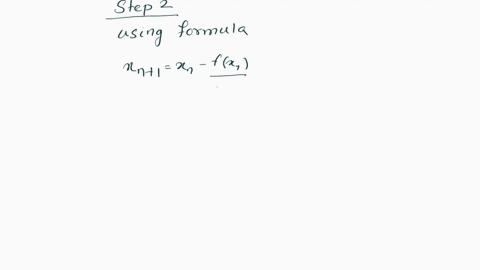 Step 2
using formula
x_{n+1} = x_n - f(x_n)